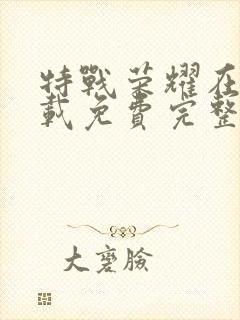 特戰荣耀在
載免費完整
大麥臉